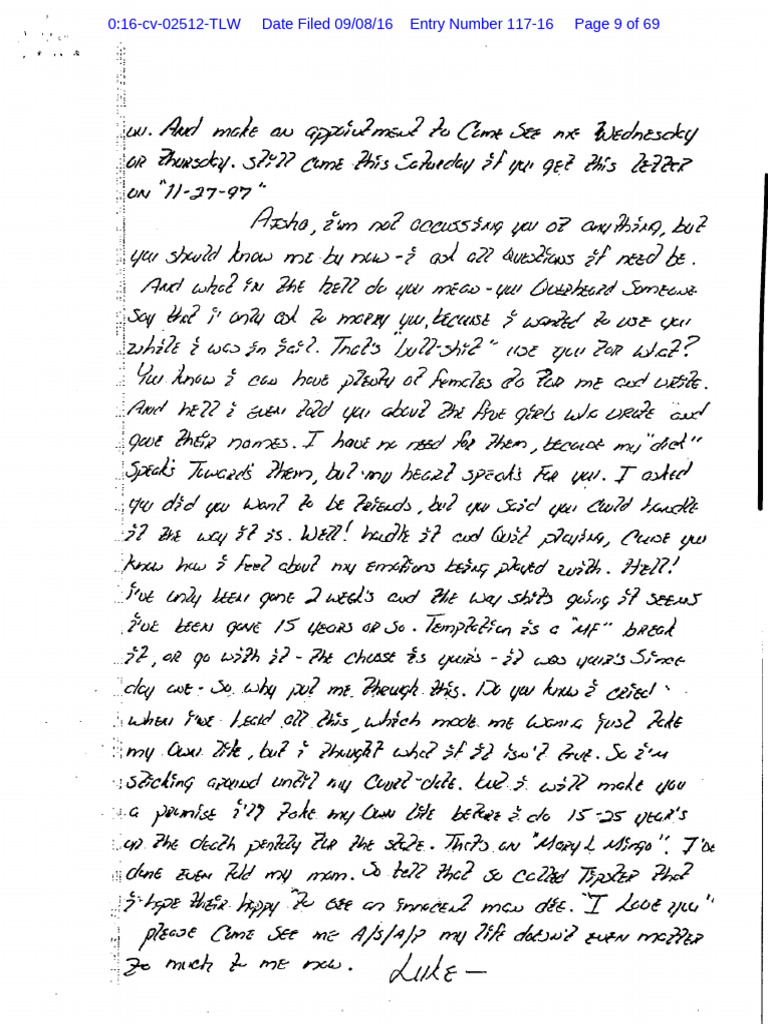 0:16-cv-02512-TLW Date Filed 09/08/16 Entry Number 117-16 Page 9 of 69
on. And make an appointment to Come See me Wednesday
or Thursday. still come this Saturday if you get this letter
on "11-27-97"
Aisha, i'm not accussing you of anything, but
you should know me by now - i ask all Questions if need be.
And what in the hell do you mean - you Overheard Someone
Say that i only ask to marry you, because i wanted to use you
while i was in jail. That's "bull-shit" use you For what?
You know i can have plenty of females do For me and write.
And hell i even told you about the five girls who wrote and
gave their names. I have no need for them, because my "dick"
Speaks Towards them, but my heart speaks For you. I asked
you did you want to be friends, but you said you could handle
it the way it is. Well! handle it and Quit playing, Cause you
know how i feel about my emotions being played with. Hell!
i've only been gone 2 weeks and the way shits going it seems
i've been gone 15 years or so. Temptation is a "MF" break
it, or go with it - the choose is yours - it was your's Since
day one - So why put me through this. Do you know i cried
when i've head all this, which made me wanna just take
my own life, but i thought what if it isn't true. So i'm
sticking around until my Court-date. but i will make you
a promise i'll take my own life before i do 15-25 year's
or the death penalty for the state. Thats on "Mary L Mingo". I've
done even told my mom. So tell that so called Tipster that
i hope their happy to see an innocent man die. "I Love you"
please Come See me A/S/A/P my life doesn't even matter
to much to me now. Luke —